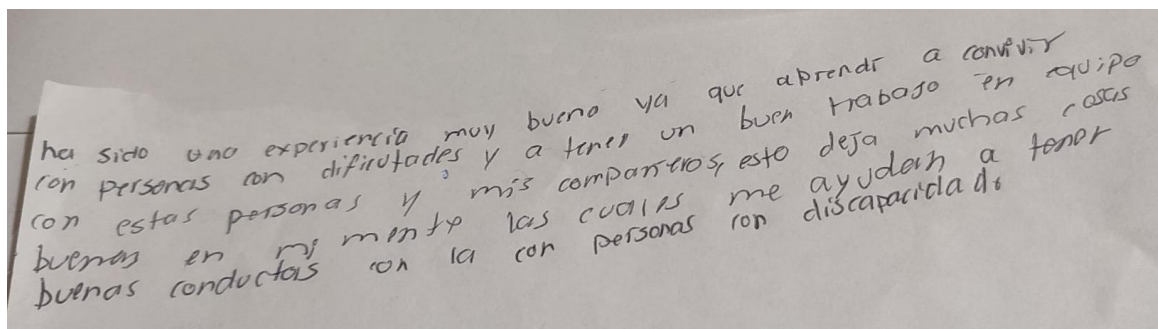 ha sido una experiencia muy bueno ya que aprendi a convivir
con personas con dificutades y a tener un buen trabajo en equipo
con estas personas y mis compañeros, esto deja muchas cosas
buenas en mi mente las cuales me ayudan a tener
buenas conductas con la con personas con discapacidad.